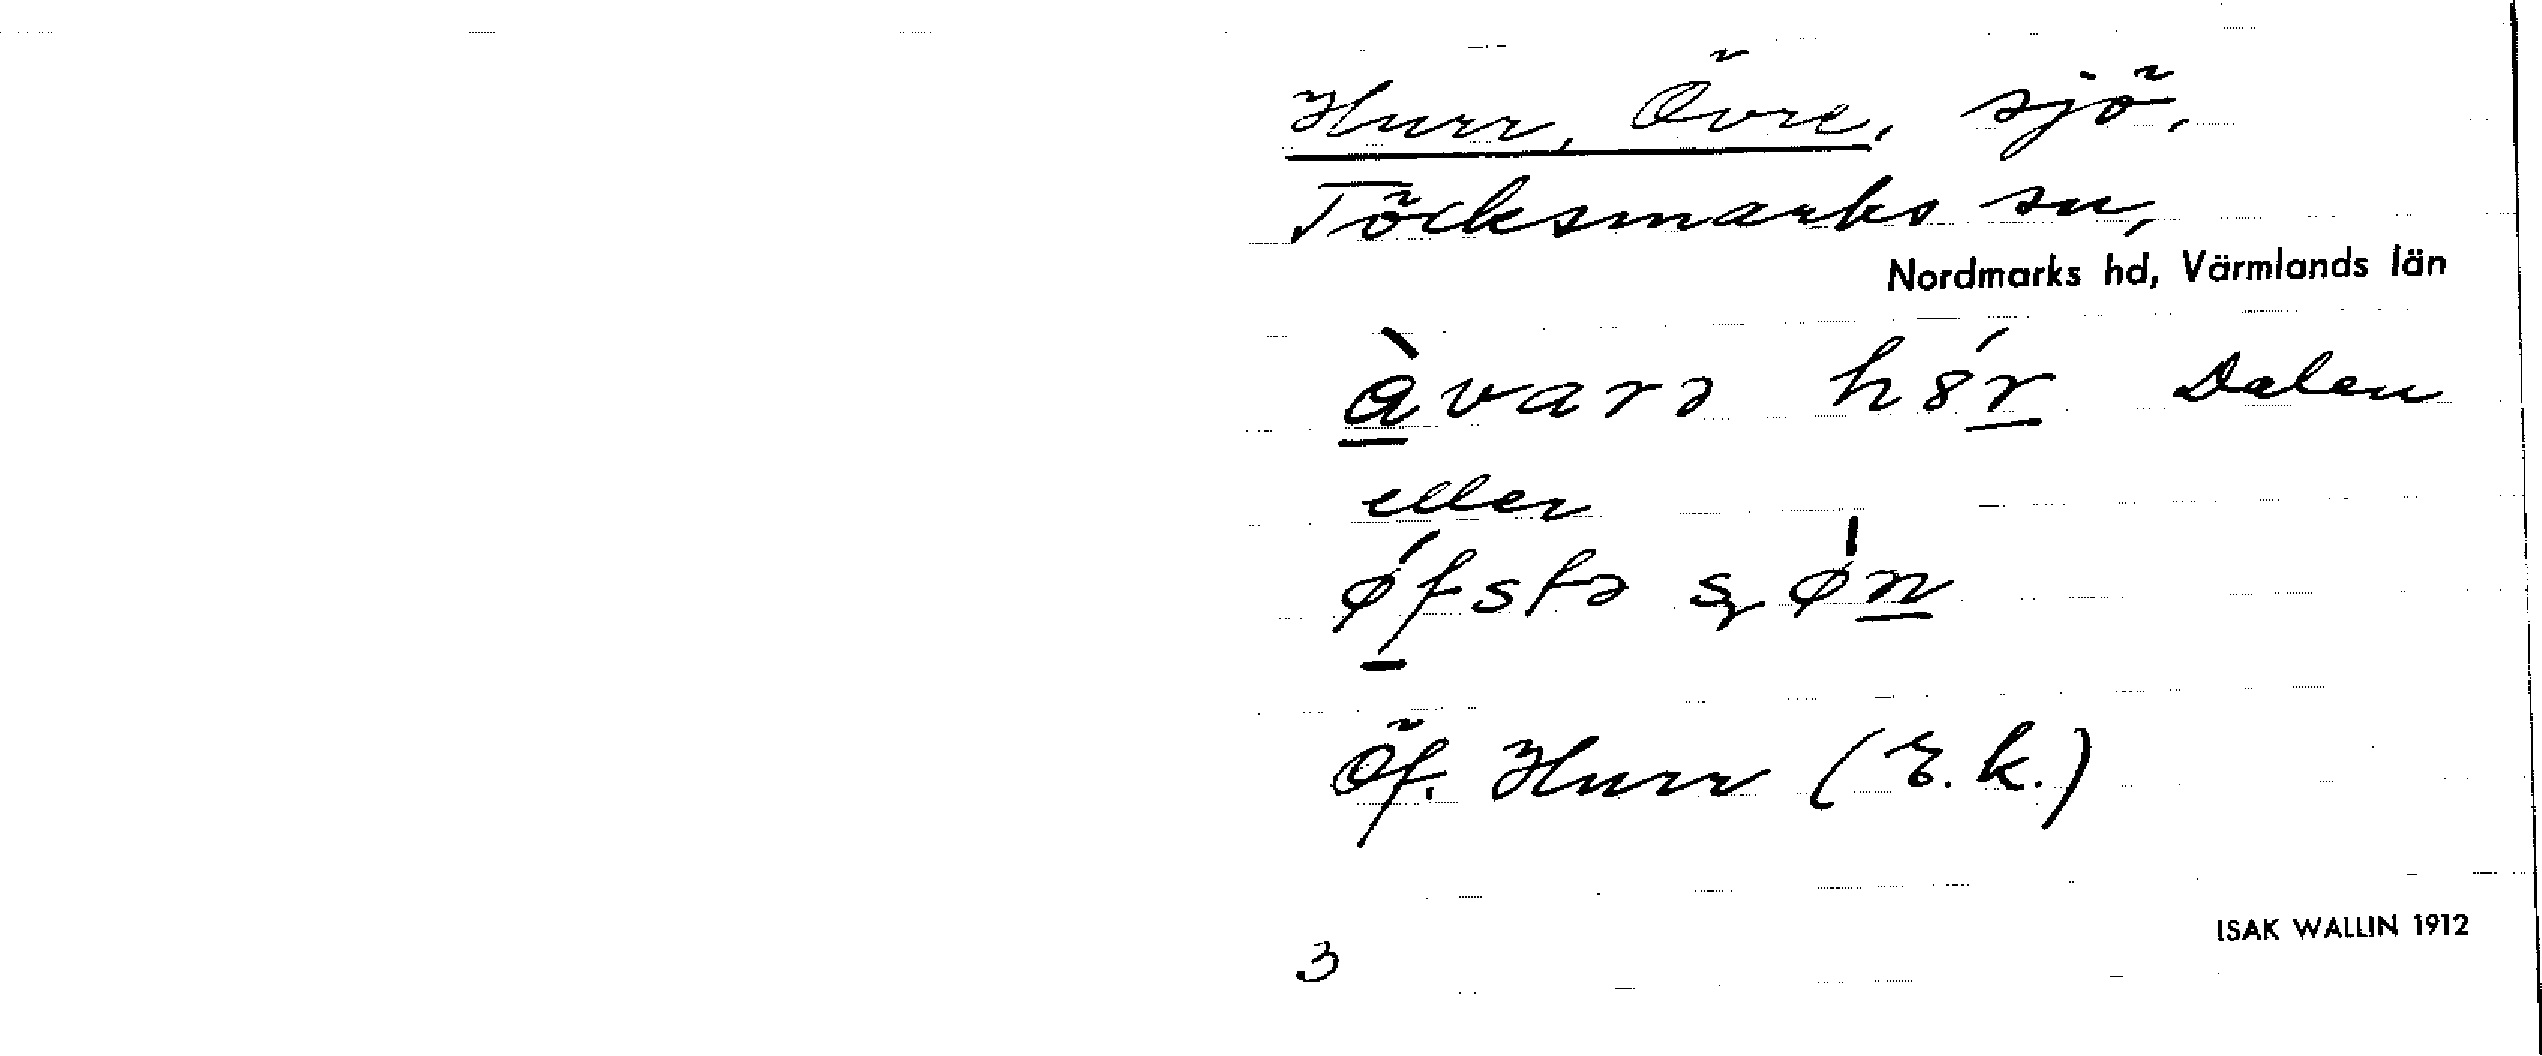 Hurr, Övre, sjö,
Töcksmarks sn,
Nordmarks hd, Värmlands län
àvarə hór Dalen
eller
ǿfstə sjøn
Öf. Hurr (E.k.)
ISAK WALLIN 1912
3